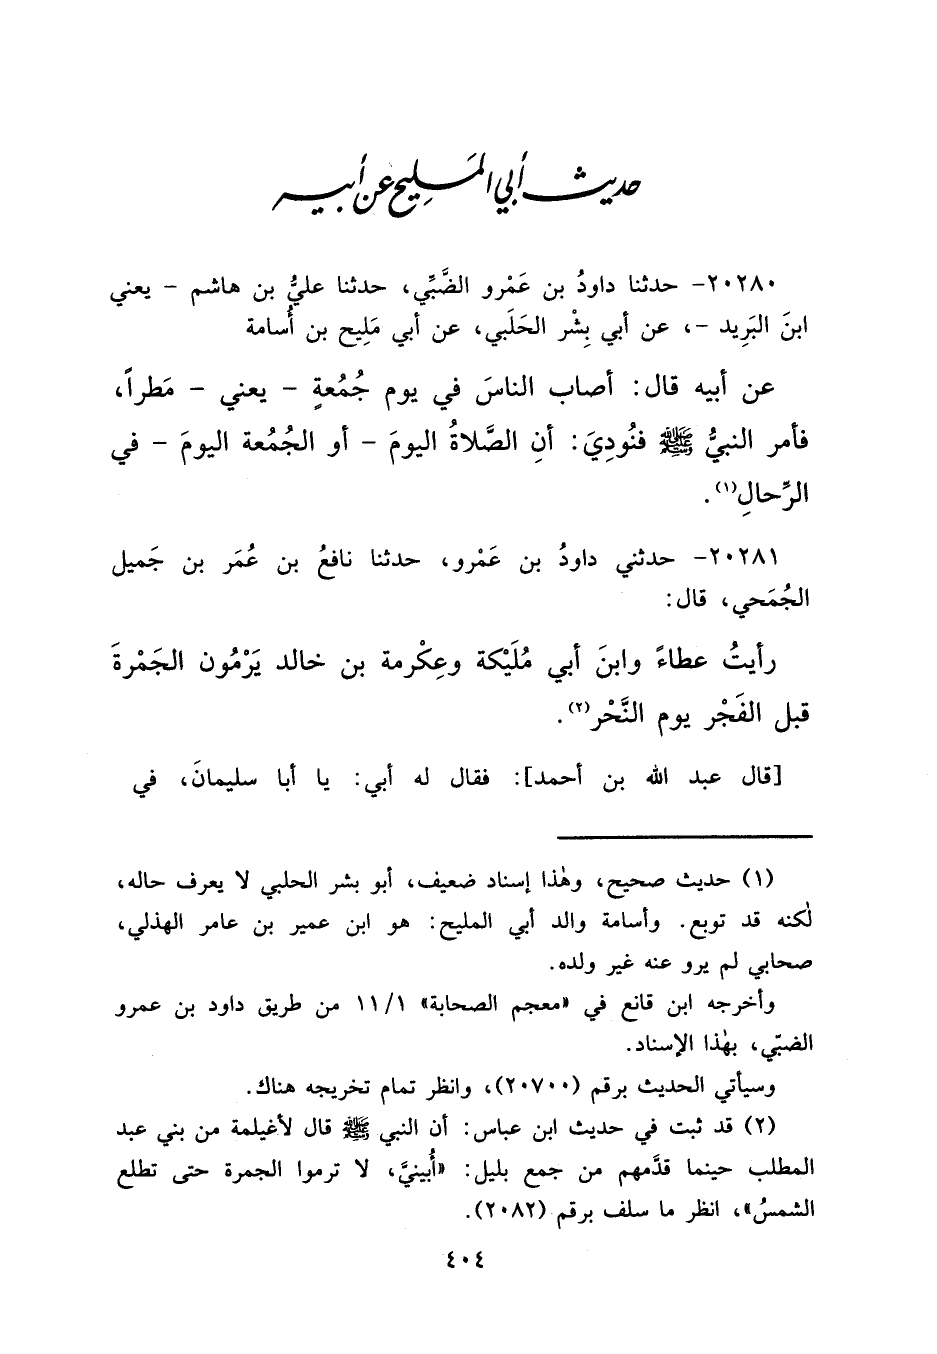 حديث أبي المَليح عن أبيه
٢٠٢٨٠- حدثنا داودُ بن عَمْرو الضَّبِّي، حدثنا عليُّ بن هاشم - يعني
ابنَ البَرِيد -، عن أبي بِشْر الحَلَبي، عن أبي مَلِيح بن أُسامة
عن أبيه قال: أصاب الناسَ في يوم جُمُعةٍ - يعني - مَطراً،
فأمر النبيُّ ﷺ فنُودِيَ: أنِ الصَّلاةُ اليومَ - أو الجُمُعة اليومَ - في
الرِّحالِ(١).
٢٠٢٨١- حدثني داودُ بن عَمْرو، حدثنا نافعُ بن عُمَر بن جَميل
الجُمَحي، قال:
رأيتُ عطاءً وابنَ أبي مُلَيْكة وعِكْرمة بن خالد يَرْمُون الجَمْرةَ
قبل الفَجْر يوم النَّحْر(٢).
[قال عبد الله بن أحمد]: فقال له أبي: يا أبا سليمانَ، في
(١) حديث صحيح، وهٰذا إسناد ضعيف، أبو بشر الحلبي لا يعرف حاله،
لٰكنه قد توبع. وأسامة والد أبي المليح: هو ابن عمير بن عامر الهذلي،
صحابي لم يرو عنه غير ولده.
وأخرجه ابن قانع في «معجم الصحابة» ١١/١ من طريق داود بن عمرو
الضبّي، بهٰذا الإسناد.
وسيأتي الحديث برقم (٢٠٧٠٠)، وانظر تمام تخريجه هناك.
(٢) قد ثبت في حديث ابن عباس: أن النبي ﷺ قال لأغيلمة من بني عبد
المطلب حينما قدَّمهم من جمع بليل: «أُبينيَّ، لا ترموا الجمرة حتى تطلع
الشمسُ»، انظر ما سلف برقم (٢٠٨٢).
٤٠٤